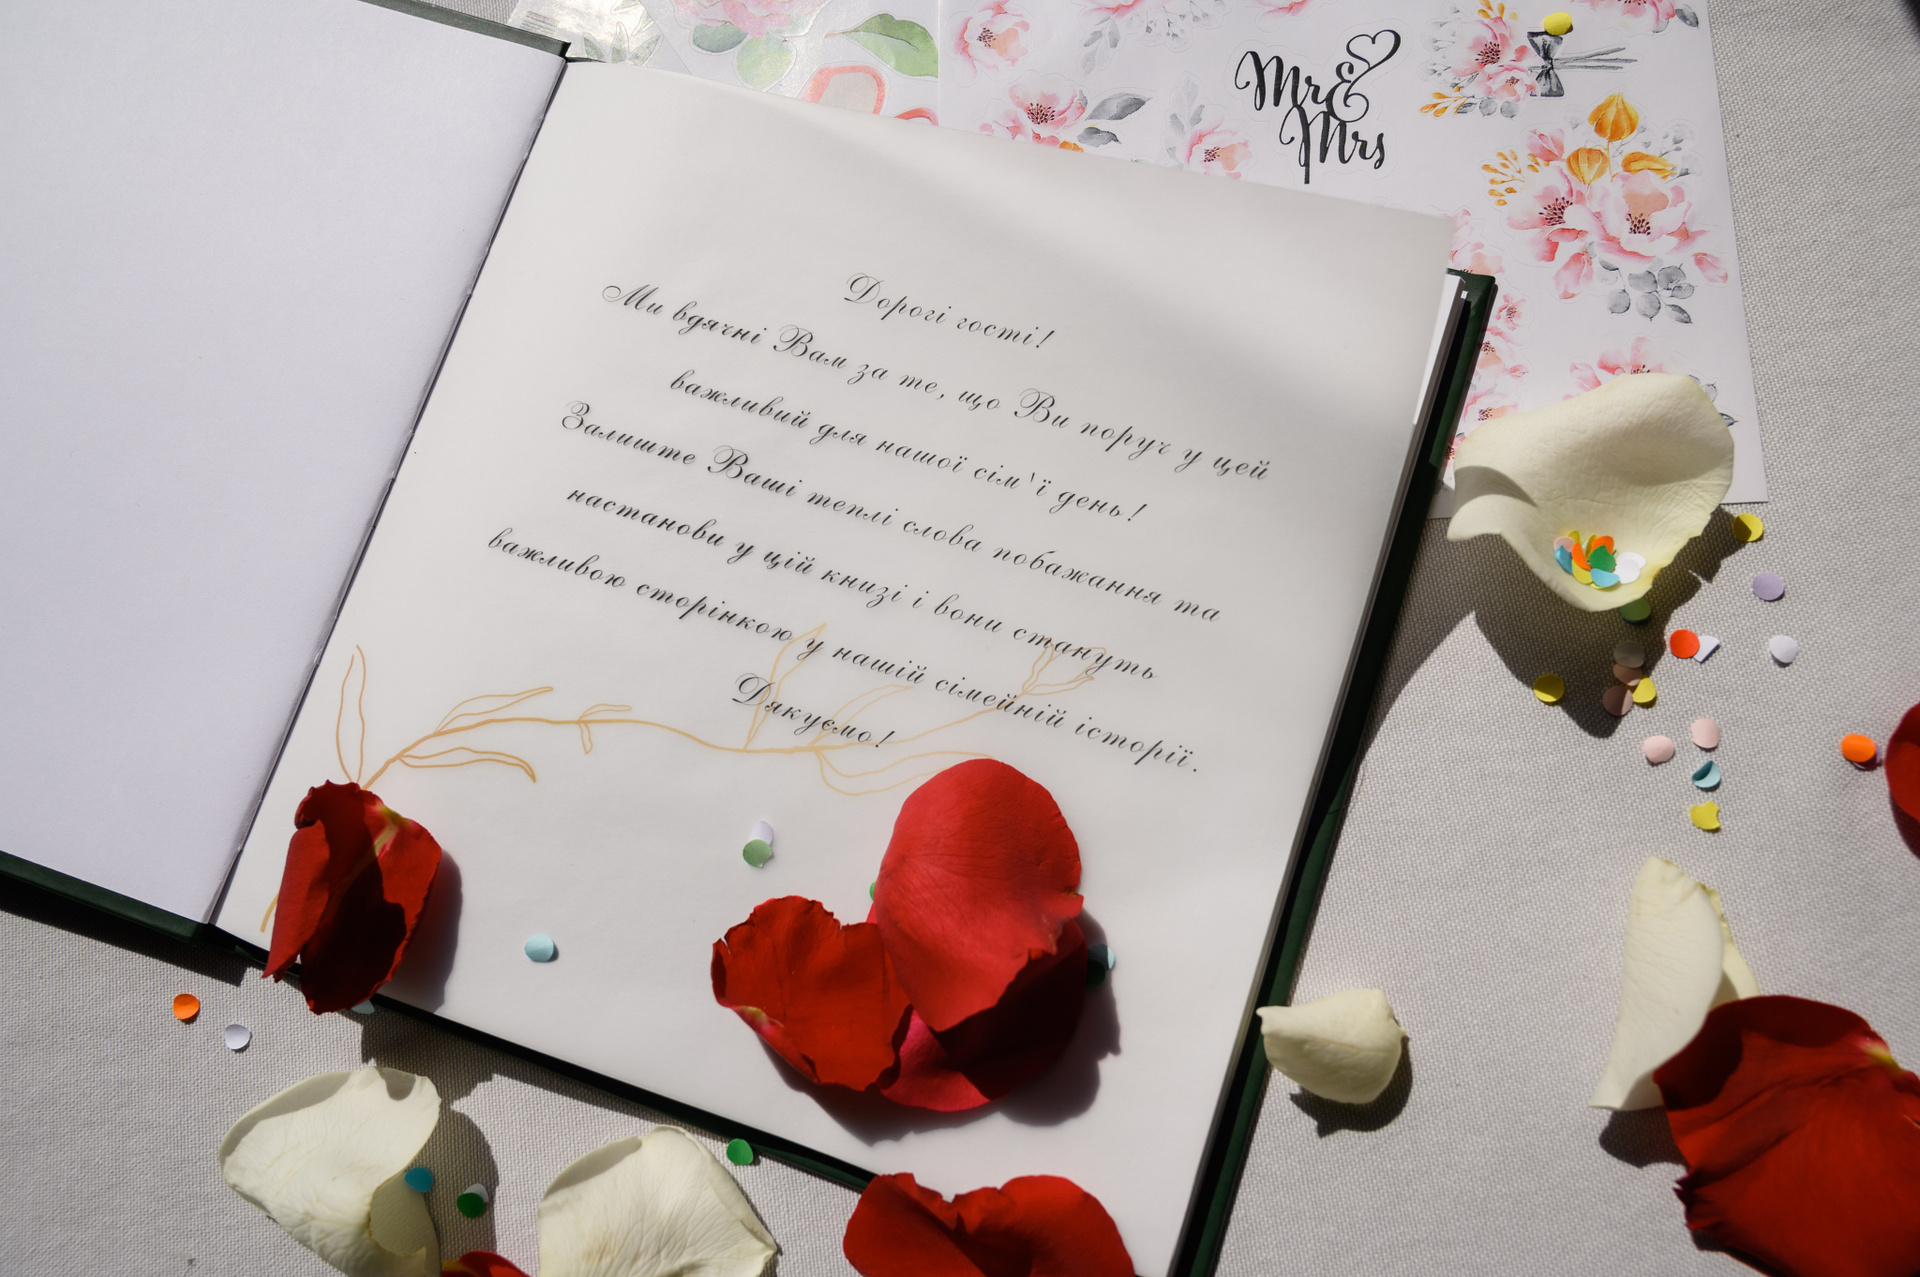 Mr &
Mrs
Дорогі гості!
Ми вдячні Вам за те, що Ви поруч у цей
важливий для нашої сім'ї день!
Залиште Ваші теплі слова побажання та
настанови у цій книзі і вони стануть
важливою сторінкою у нашій сімейній історії.
Дякуємо!